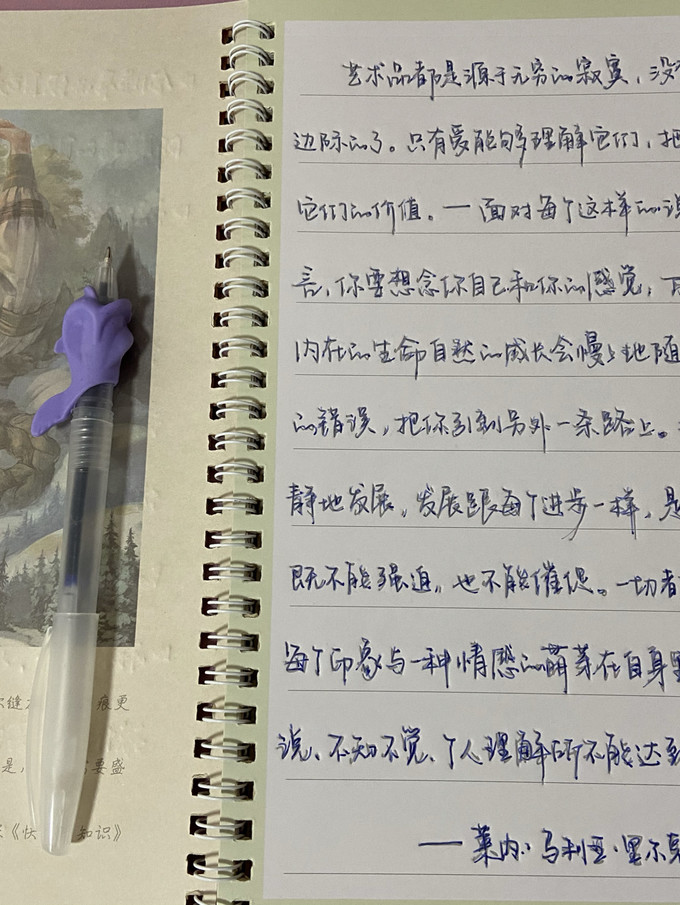 艺术品都是源于无穷的寂寞，没
边际的了。只有爱能够理解它们，把
它们的价值。— 面对每个这样的说
言，你要想念你自己和你的感觉，万
内在的生命自然的成长会慢慢地随
的错误，把你引到另外一条路上。
静地发展，发展跟每个进步一样，是
既不能强迫，也不能催促。一切都
每个印象与一种情感的萌芽在自身里
说、不知不觉、个人理解所不能达到
—— 莱内·马利亚·里尔克
缝 痕更
是， 要盛
《快 知识》